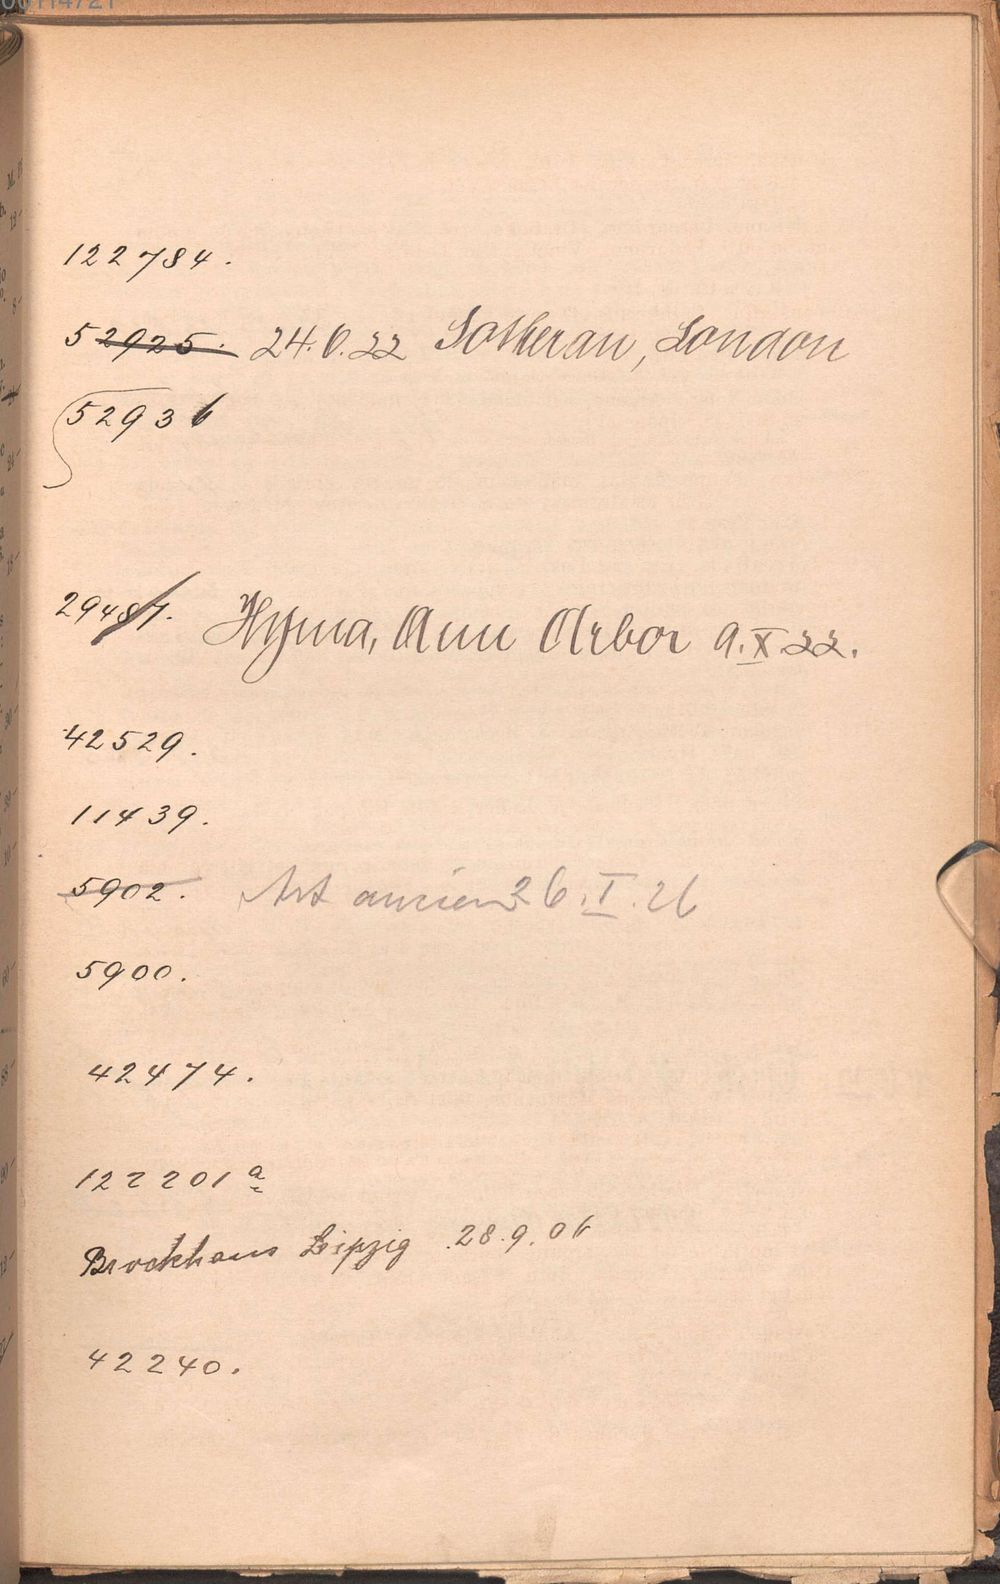 122784.
52925. 24.6.22 Sotheran, London
52936
29487. Hyma, Ann Arbor 9.X.22.
42529.
11439.
5902. Art ancien 26.I.26
5900.
42474.
122201a
Brockhaus Leipzig 28.9.06
42240.